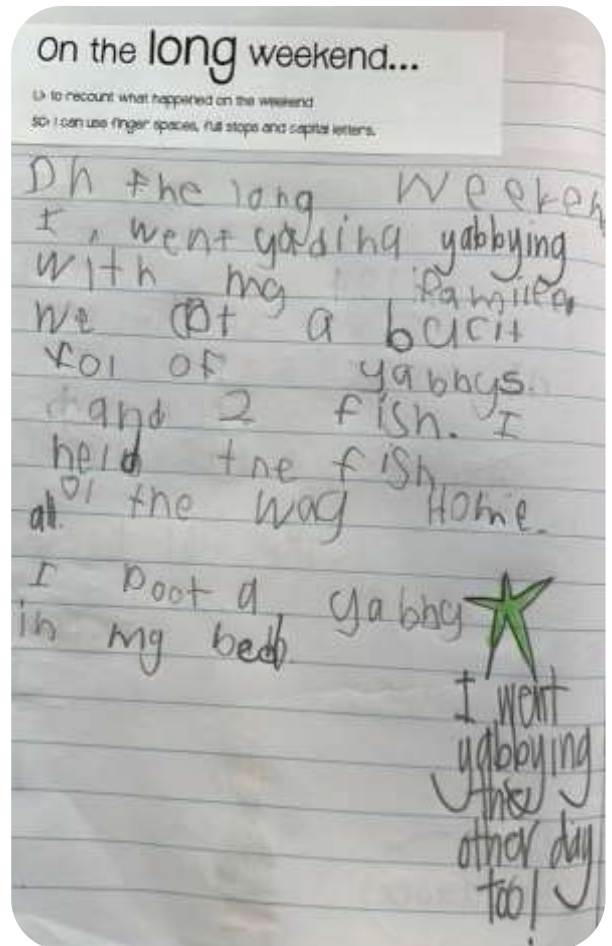 On the long weekend...
LI> to recount what happened on the weekend
SC> I can use finger spaces, full stops and capital letters.
On the long Weeken
I went yabbying
with my familee,
We cot a bucit
fol of yabbys.
and 2 fish. I
held the fish
ol the way Home.
all
I poot a yabby
in my bed.
I went
yabbying
the
other day
too!